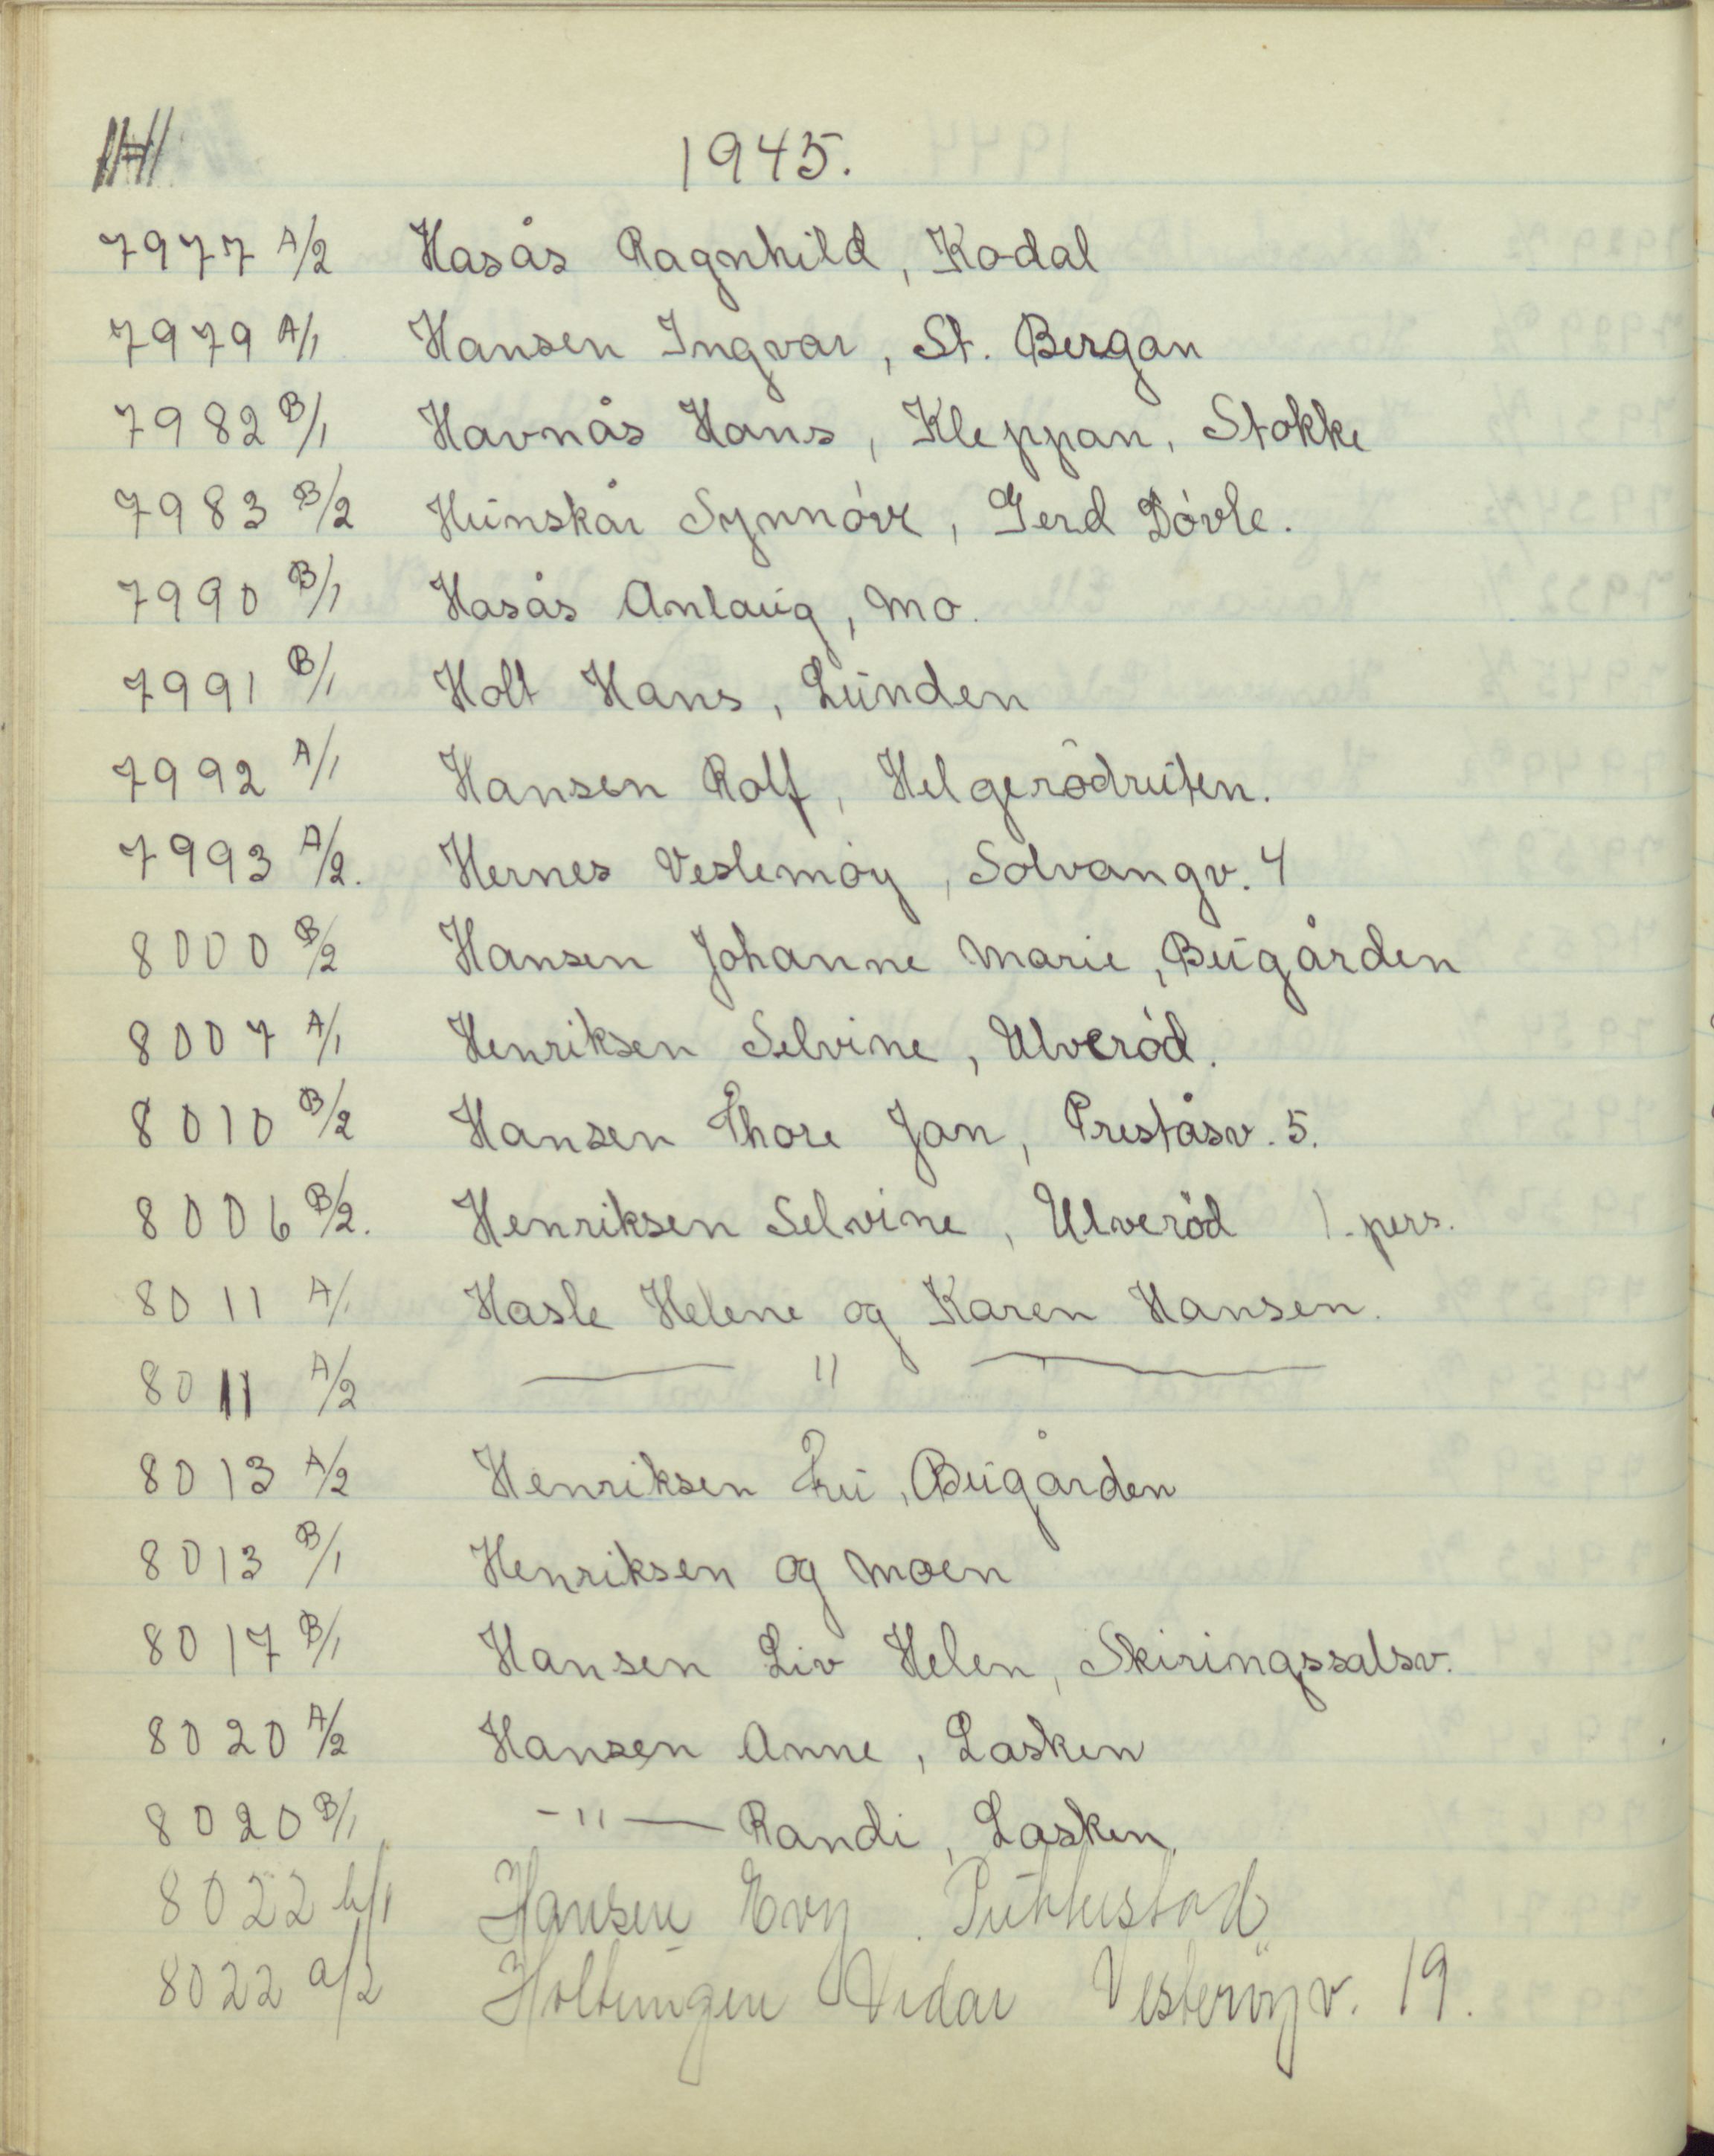 H
1945.
7977 A/2 Hasås Ragnhild, Kodal
7979 A/1 Hansen Ingvar, St. Bergan
7982 B/1 Havnås Hans, Kleppan, Stokke
7983 B/2 Hunskår Synnóve, Gerd Dóvle.
7990 B/1 Hasås Anlaug, Mo.
7991 B/1 Holt Hans, Lunden
7992 A/1 Hansen Rolf, Helgerödruten.
7993 A/2. Hernes Veslemóy, Solvangv. 4
8000 B/2 Hansen Johanne Marie, Bugården
8007 A/1 Henriksen Selvine, Ulveród.
8010 B/2 Hansen Thore Jan, Preståsv. 5.
8006 B/2. Henriksen Selvine, Ulveröd 1. pers.
8011 A/1 Hasle Helene og Karen Hansen.
8011 A/2 — " —
8013 A/2 Henriksen Fru, Bugården
8013 B/1 Henriksen og Moen
8017 B/1 Hansen Liv Helen, Skiringssalsv.
8020 A/2 Hansen Anne, Lasken
8020 B/1 - " — Randi, Lasken.
8022 b/1 Hansen Evy. Pukkestad
8022 a/2 Holtungen Vidar Vesteröyv. 19.